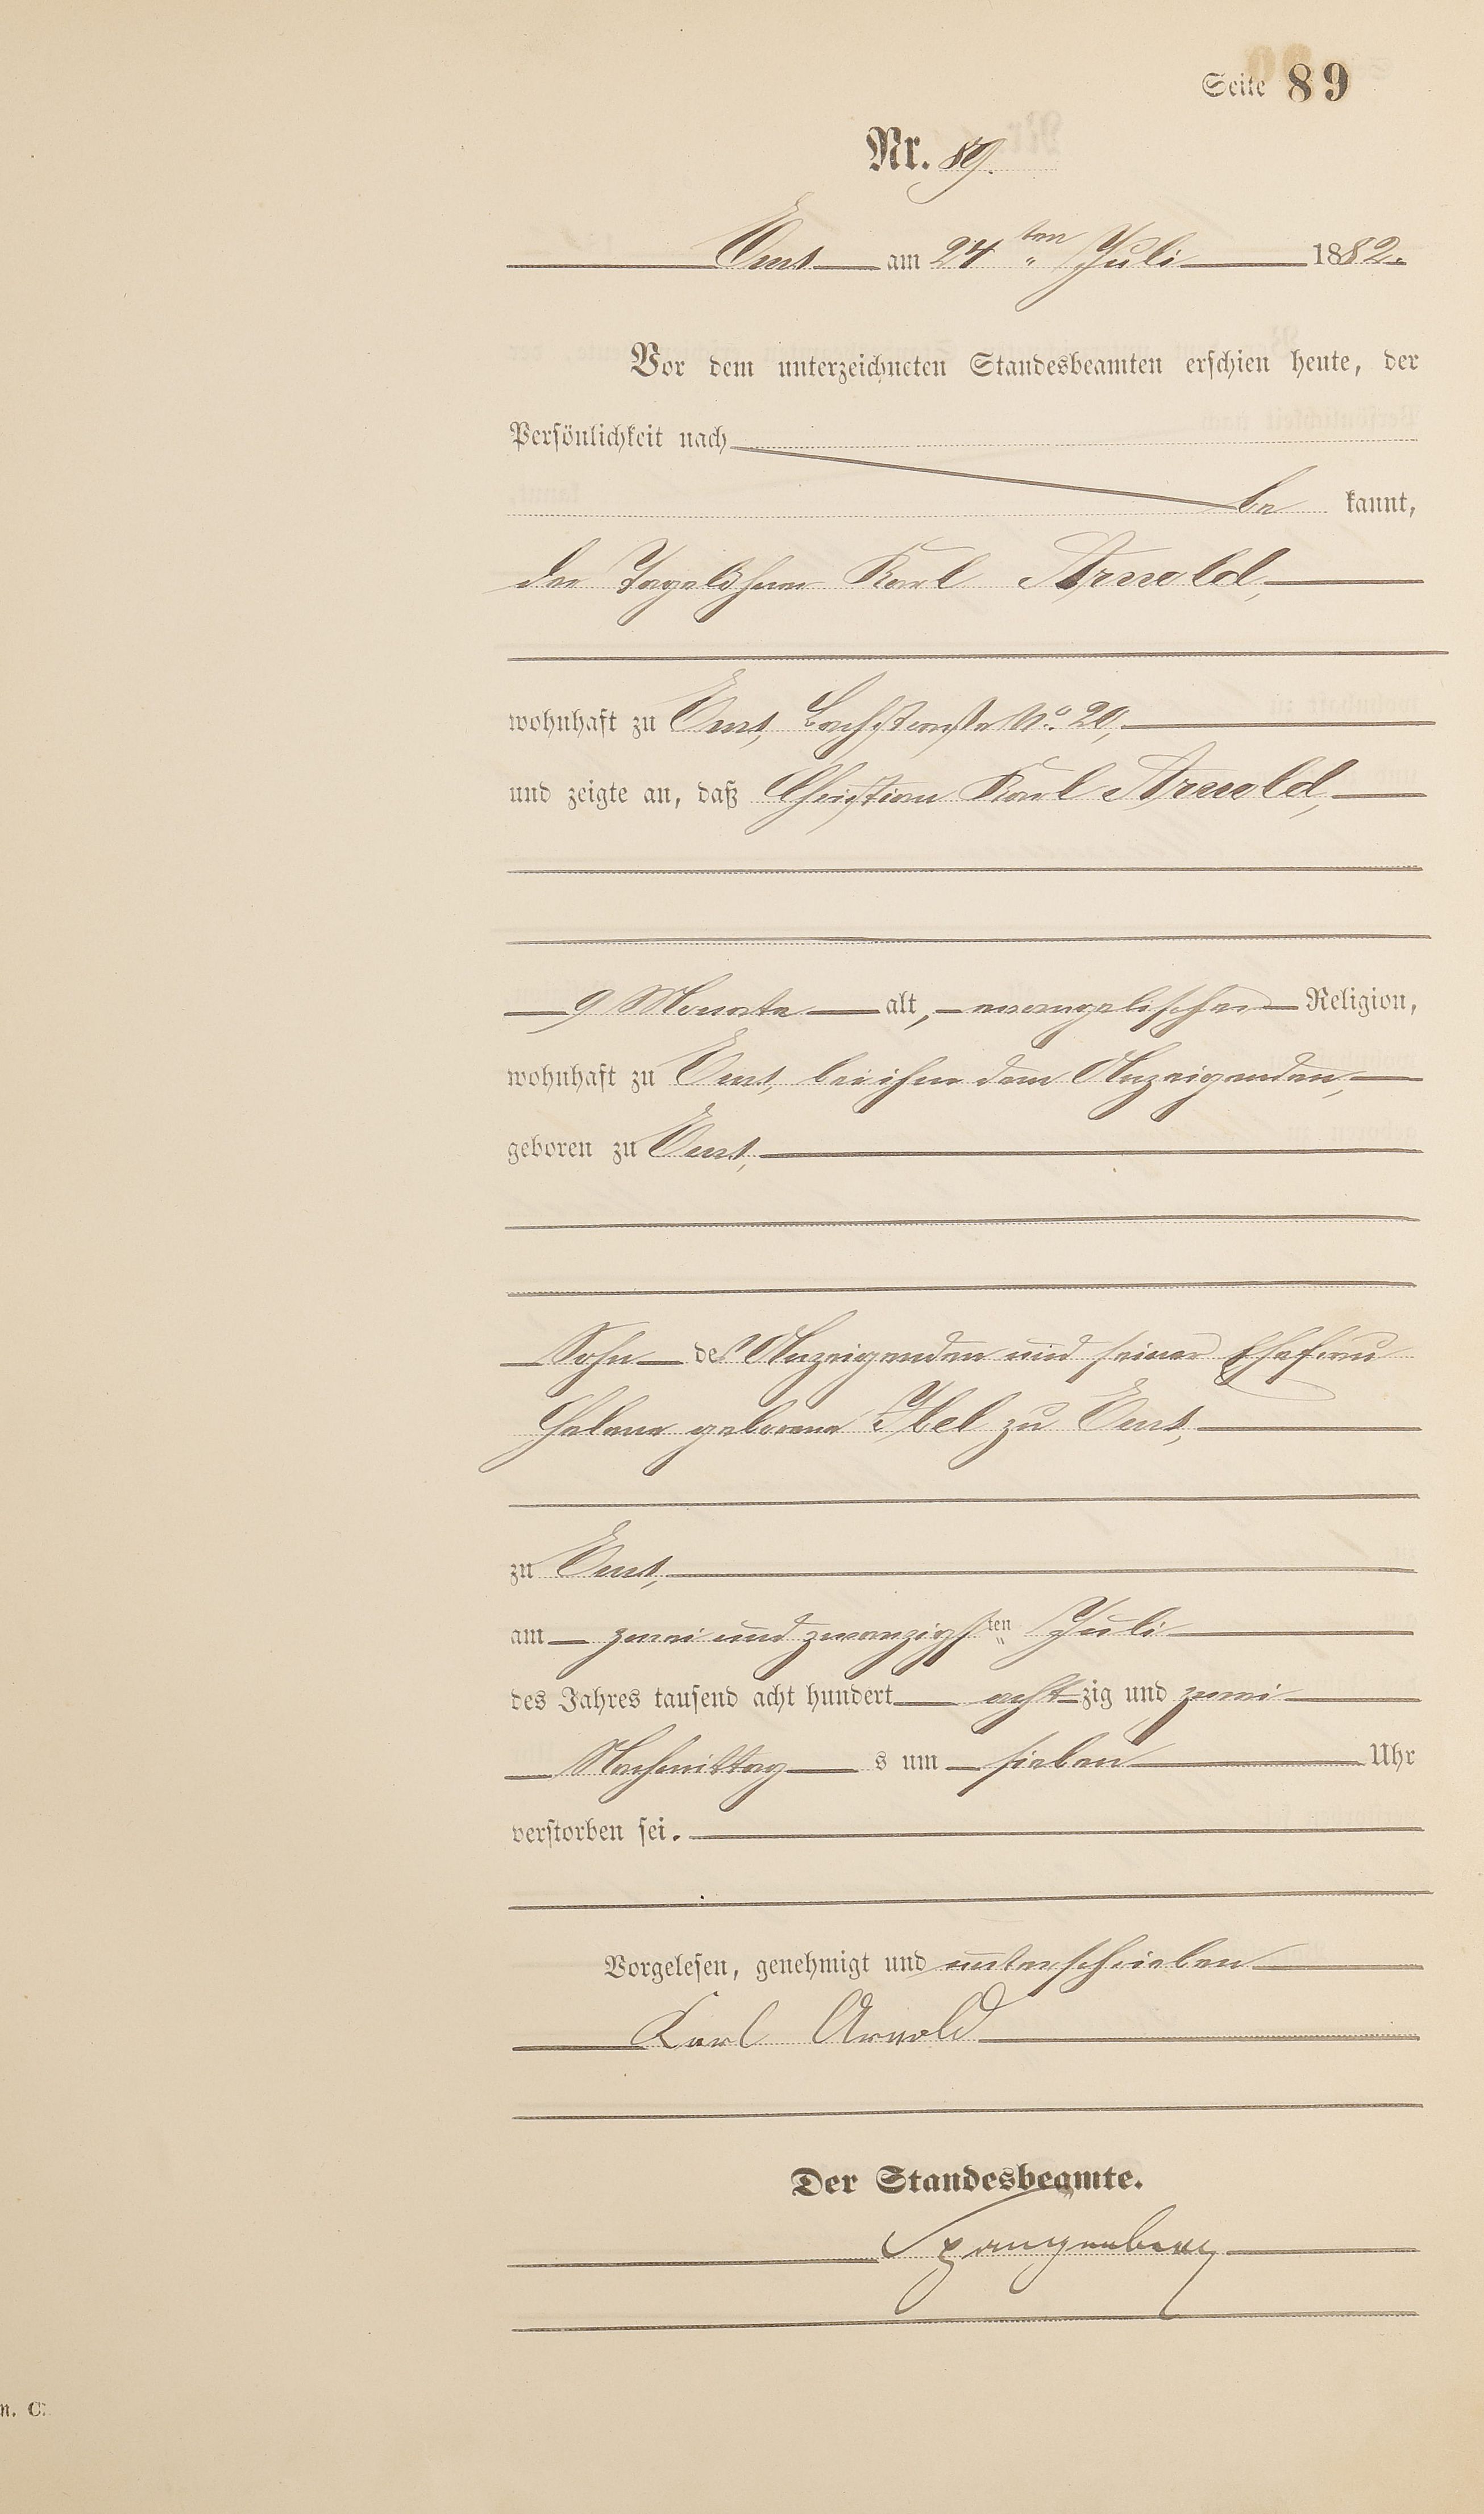 Seite 89
Nr. 89.
Ems am 24ten Juli 1882.
Vor dem unterzeichneten Standesbeamten erschien heute, der
Persönlichkeit nach
be kannt,
der Tagelöhner Karl Arnold,
wohnhaft zu Ems, Bachstraße No. 20,
und zeigte an, daß Christian Karl Arnold,
9 Monate alt, evangelischer Religion,
wohnhaft zu Ems, bei ihm dem Anzeigenden,
geboren zu Ems,
Sohn des Anzeigenden und seiner Ehefrau
Helene geborene Ibel zu Ems,
zu Ems,
am zwei und zwanzigsten Juli
des Jahres tausend acht hundert achtzig und zwei
Nachmittag s um sieben Uhr
verstorben sei.
Vorgelesen, genehmigt und unterschrieben
Karl Arnold
Der Standesbeamte.
Spangenberg
n. C.